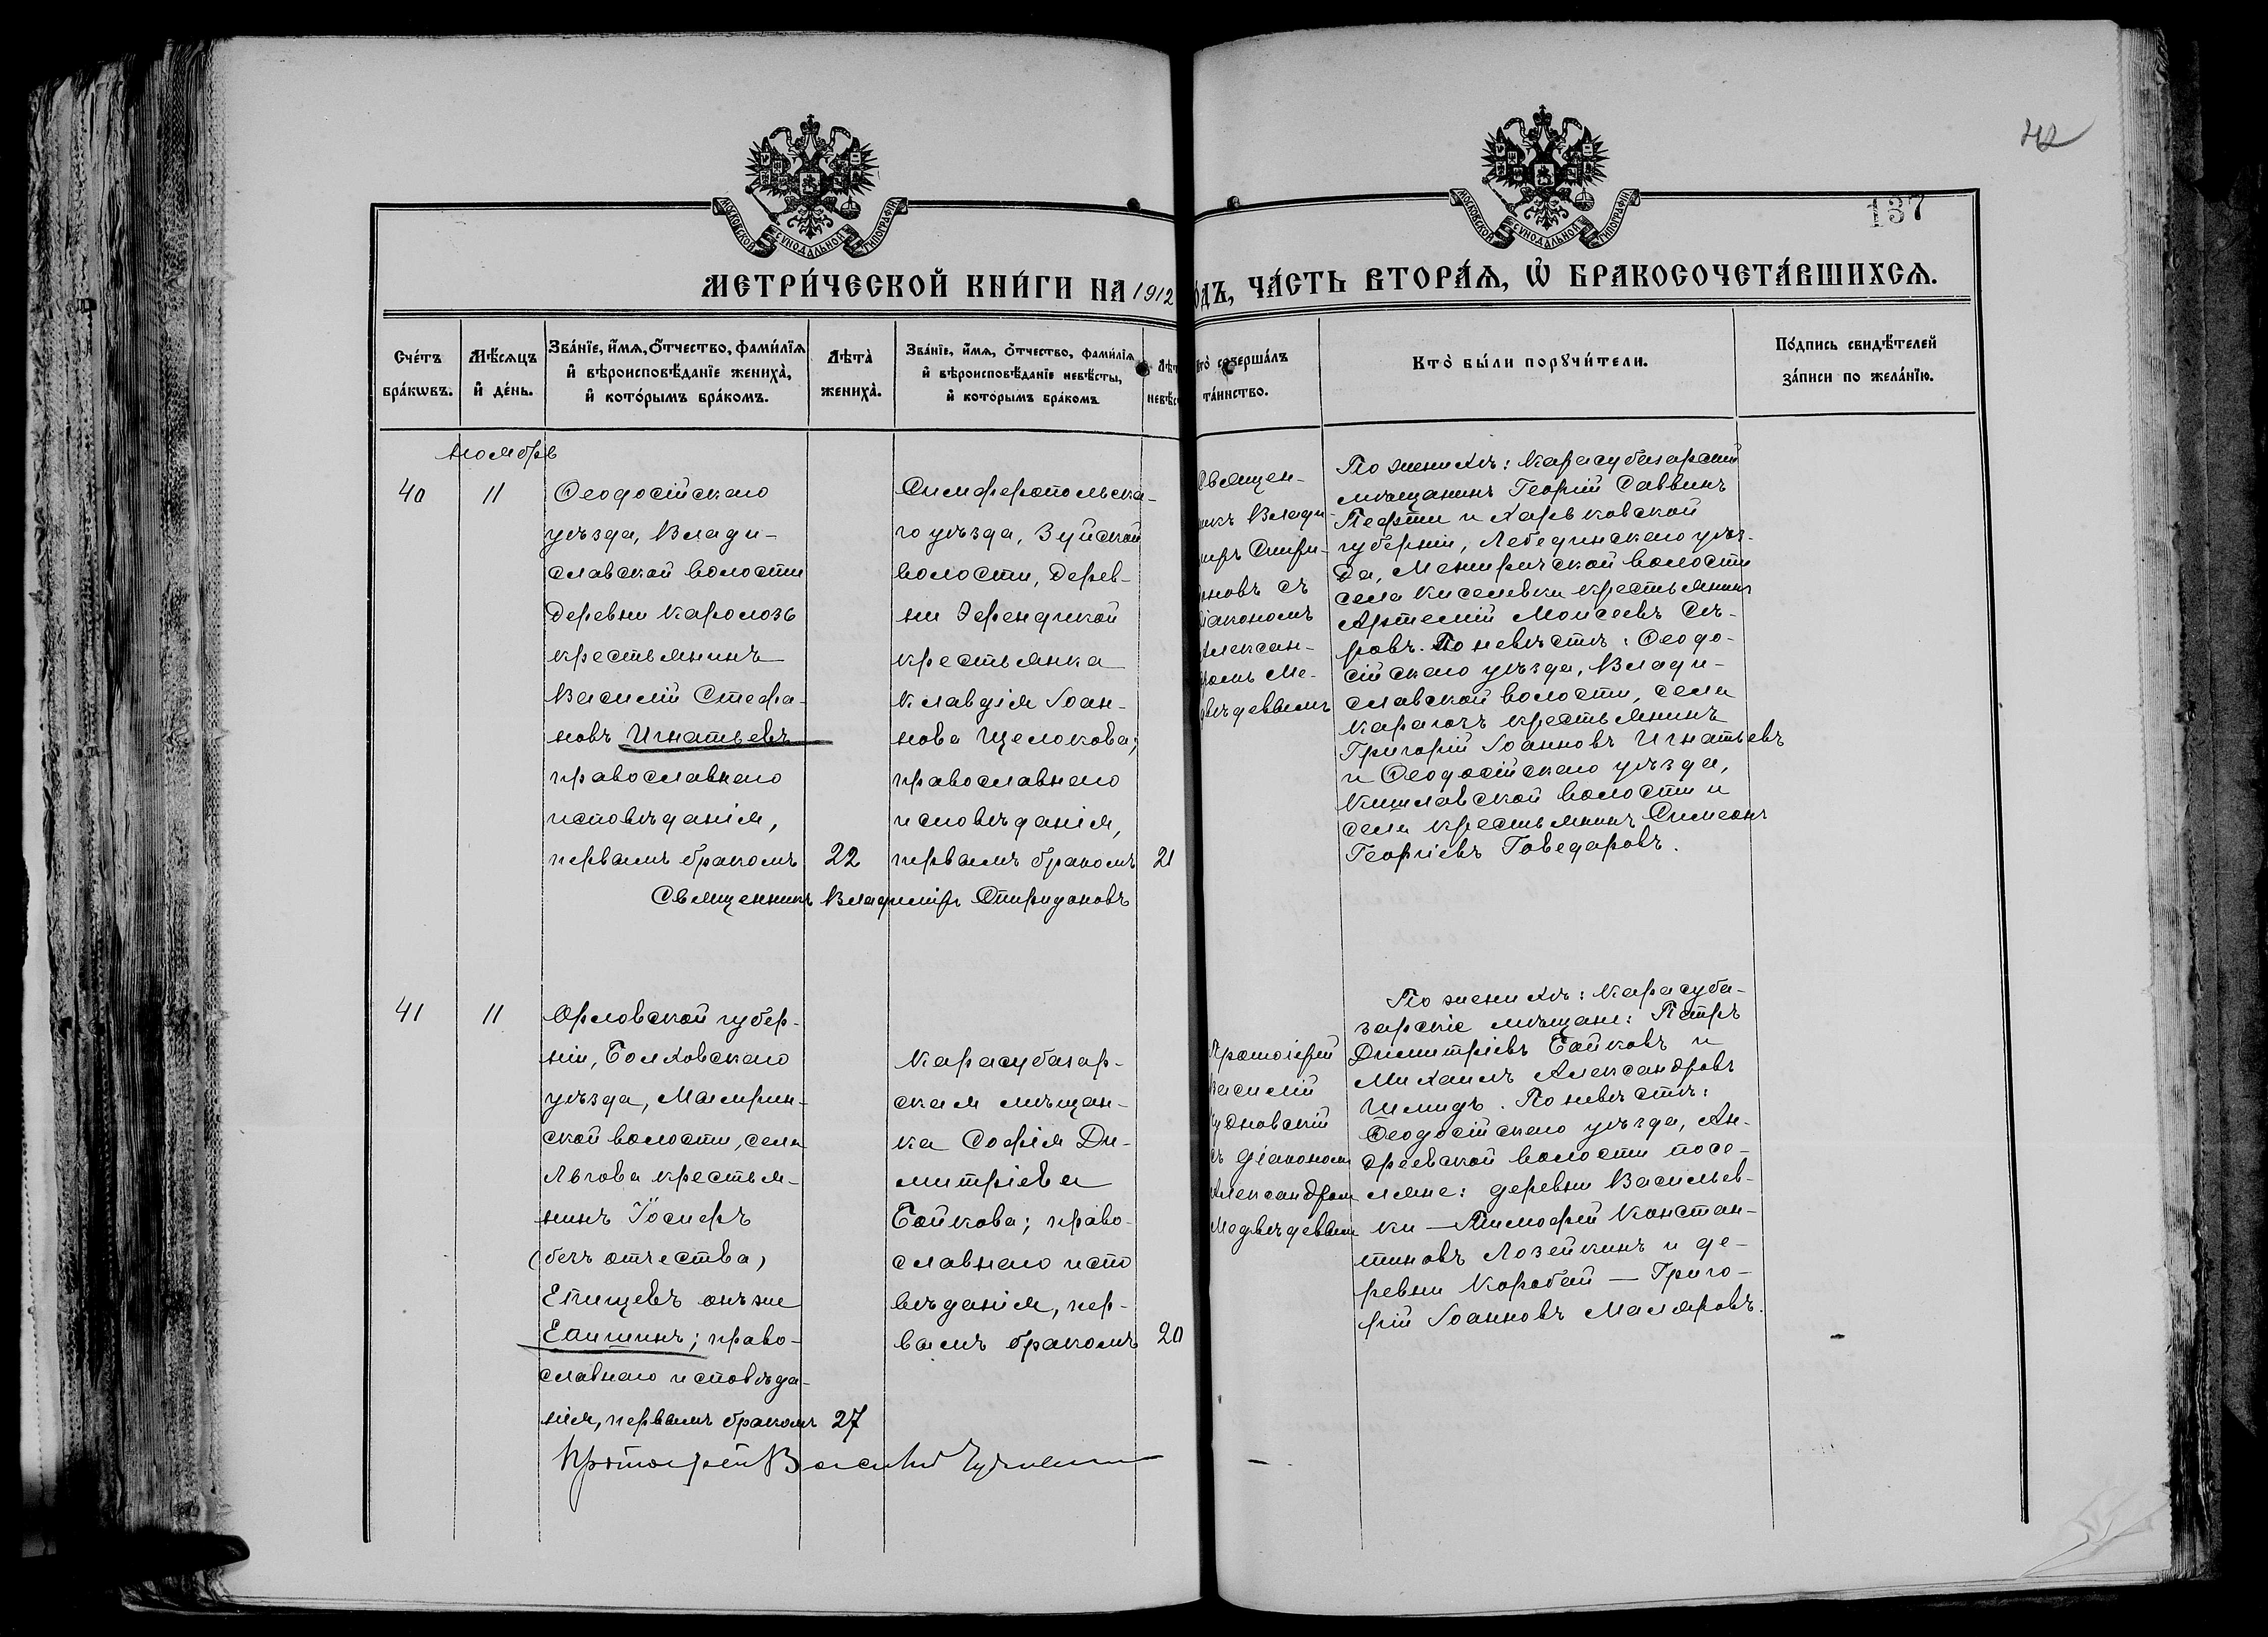 42
137
МОСКОВСКОЙ СѴНОДАЛЬНОЙ ТИПОГРАФІИ
МОСКОВСКОЙ СѴНОДАЛЬНОЙ ТИПОГРАФІИ
МЕТРИ́ЧЕСКОЙ КНИ́ГИ НА 1912
О́ДЪ, ЧА́СТЬ ВТОРА́Ѧ, Ѡ҆ БРАКОСОЧЕТА́ВШИХСѦ.
Сче́тъ
бра́кѡвъ.
Мѣ́сѧцъ
и҆ де́нь.
Зва́нїе, и҆́мѧ, ѻ҆́тчество, фами́лїѧ
и҆ вѣроисповѣ́данїе жениха̀,
и҆ кото́рымъ бра́комъ.
Лѣ́та
жениха̀.
Зва́нїе, и҆́мѧ, ѻ҆́тчество, фами́лїѧ
и҆ вѣроисповѣ́данїе невѣ́сты,
и҆ кото́рымъ бра́комъ
Лѣт
невѣс
то̀ соверша́лъ
та́инство.
Кто̀ бы́ли порꙋчи́тели.
По́дпись свидѣ́телей
за́писи по жела́нїю.
Ноябрь
40
11
Ѳеодосійскаго
уѣзда, Влади-
славской волости
деревни Каролозъ
крестьянинъ
Василій Стефа-
новъ Игнатьевъ
православнаго
исповѣданія,
первымъ бракомъ
22
Симферопольска-
го уѣзда, Зуйской
волости, дерев-
ни Эфендикой
крестьянка
Клавдія Іоан-
нова Щелокова;
православнаго
исповѣданія,
первымъ бракомъ
21
Священникъ Владиміръ Спиридоновъ
Священ-
никъ Влади-
міръ Спири-
оновъ съ
діакономъ
Алексан-
ромъ Ме-
двѣдевымъ
По женихѣ: Карасубазарскій
мѣщанинъ Георгій Саввинъ
Пефти и Харьковской
губерніи, Лебединскаго уѣз-
да, Межиричской волости
села Киселевки крестьянинъ
Артемій Моисеевъ Сѣ-
ровъ. По невѣстѣ: Ѳеодо-
сійскаго уѣзда, Влади-
славской волости, села
Карагозъ крестьянинъ
Григорій Іоанновъ Игнатьевъ
и Ѳеодосійскаго уѣзда,
Кишлавской волости и
села крестьянинъ Симеонъ
Георгіевъ Говедаровъ.
41
11
Орловской губер-
ніи, Болховскаго
уѣзда, Маирин-
ской волости, села
Льгова крестья-
нинъ Іосифъ
(безъ отчества)
Епищевъ онъ же
Епишинъ; право-
славнаго исповѣда-
нія, первымъ бракомъ
27
Карасубазар-
ская мѣщан-
ка Софія Ди-
митріева
Байкова; право-
славнаго испо
вѣданія, пер-
вымъ бракомъ
20
Протоіерей Василій Чудновскій
Протоіерей
Василій
Чудновскій
съ діакономъ
Александромъ
Медвѣдевымъ
По женихѣ: Карасуба-
зарскіе мѣщане: Петръ
Димитріевъ Байковъ и
Михаилъ Александровъ
Шмидъ. По невѣстѣ:
Ѳеодосійскаго уѣзда, Ан-
дреевской волости посе-
ляне: деревни Васильев-
ки — Тимофей Констан-
тиновъ Лозейкинъ и де-
ревни Коробай — Григо-
рій Іоанновъ Маляровъ.